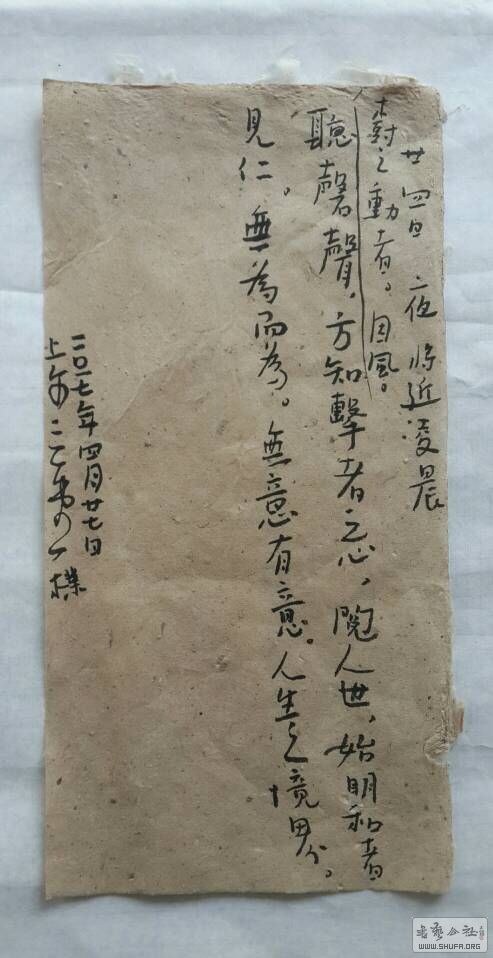 廿四日夜将近凌晨
樹之動者。因風。
聽磬聲，方知擊者之心，閱人世，始明和者
見仁。無為而為。無意有意。人生之境界。
二〇一七年四月廿七日
上午
書艺公社
WWW.SHUFA.ORG